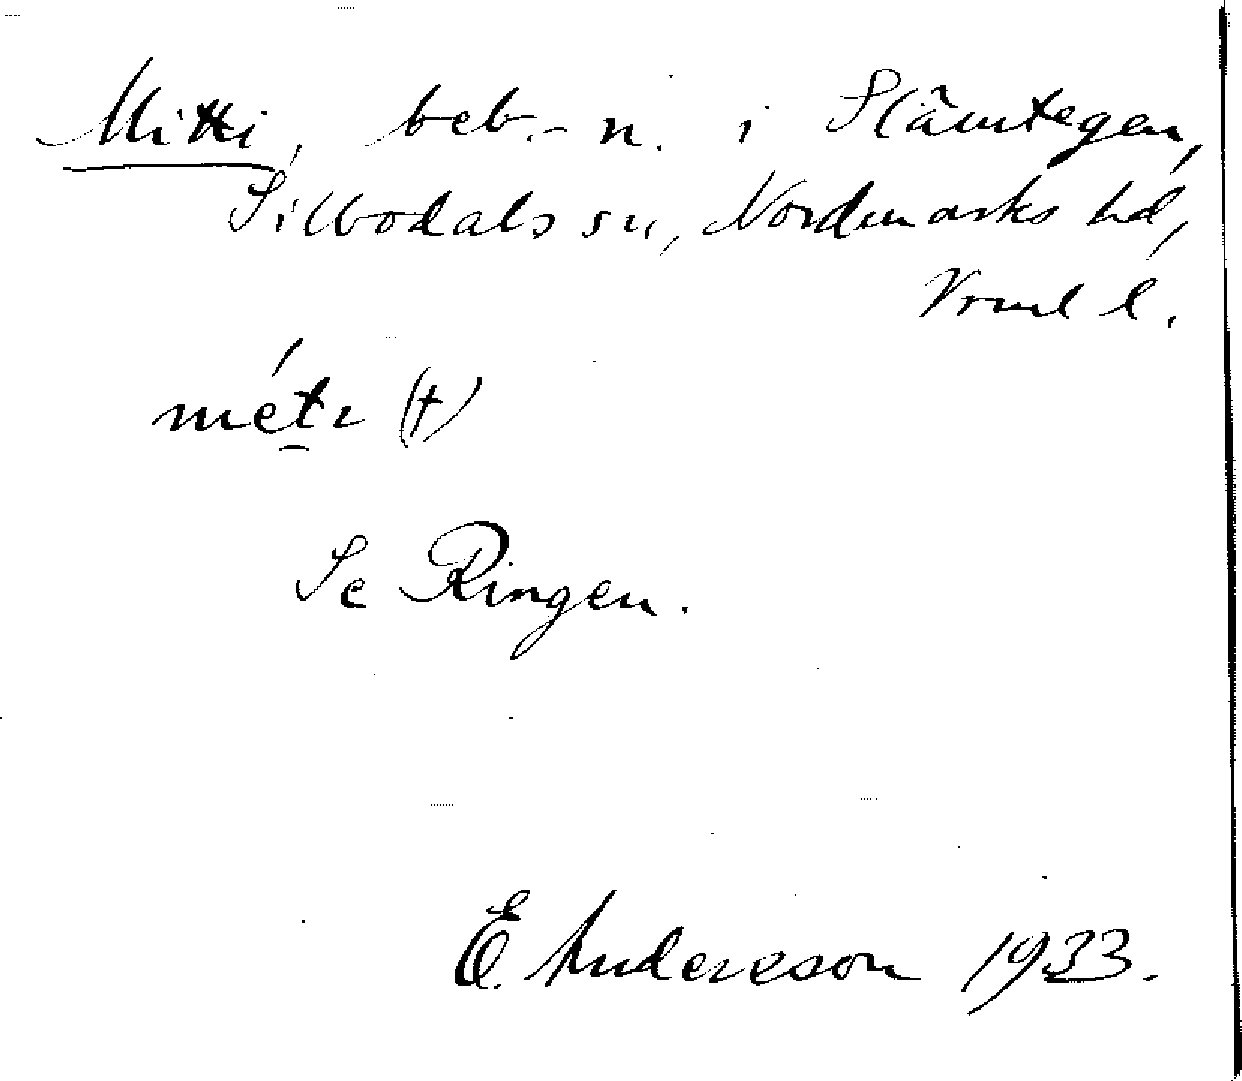 Mitti, beb.-n. i Slämtegen,
Silbodals sn, Nordmarks hd,
Vrml l.
méti (+)
Se Ringen.
E. Andersson 1933.